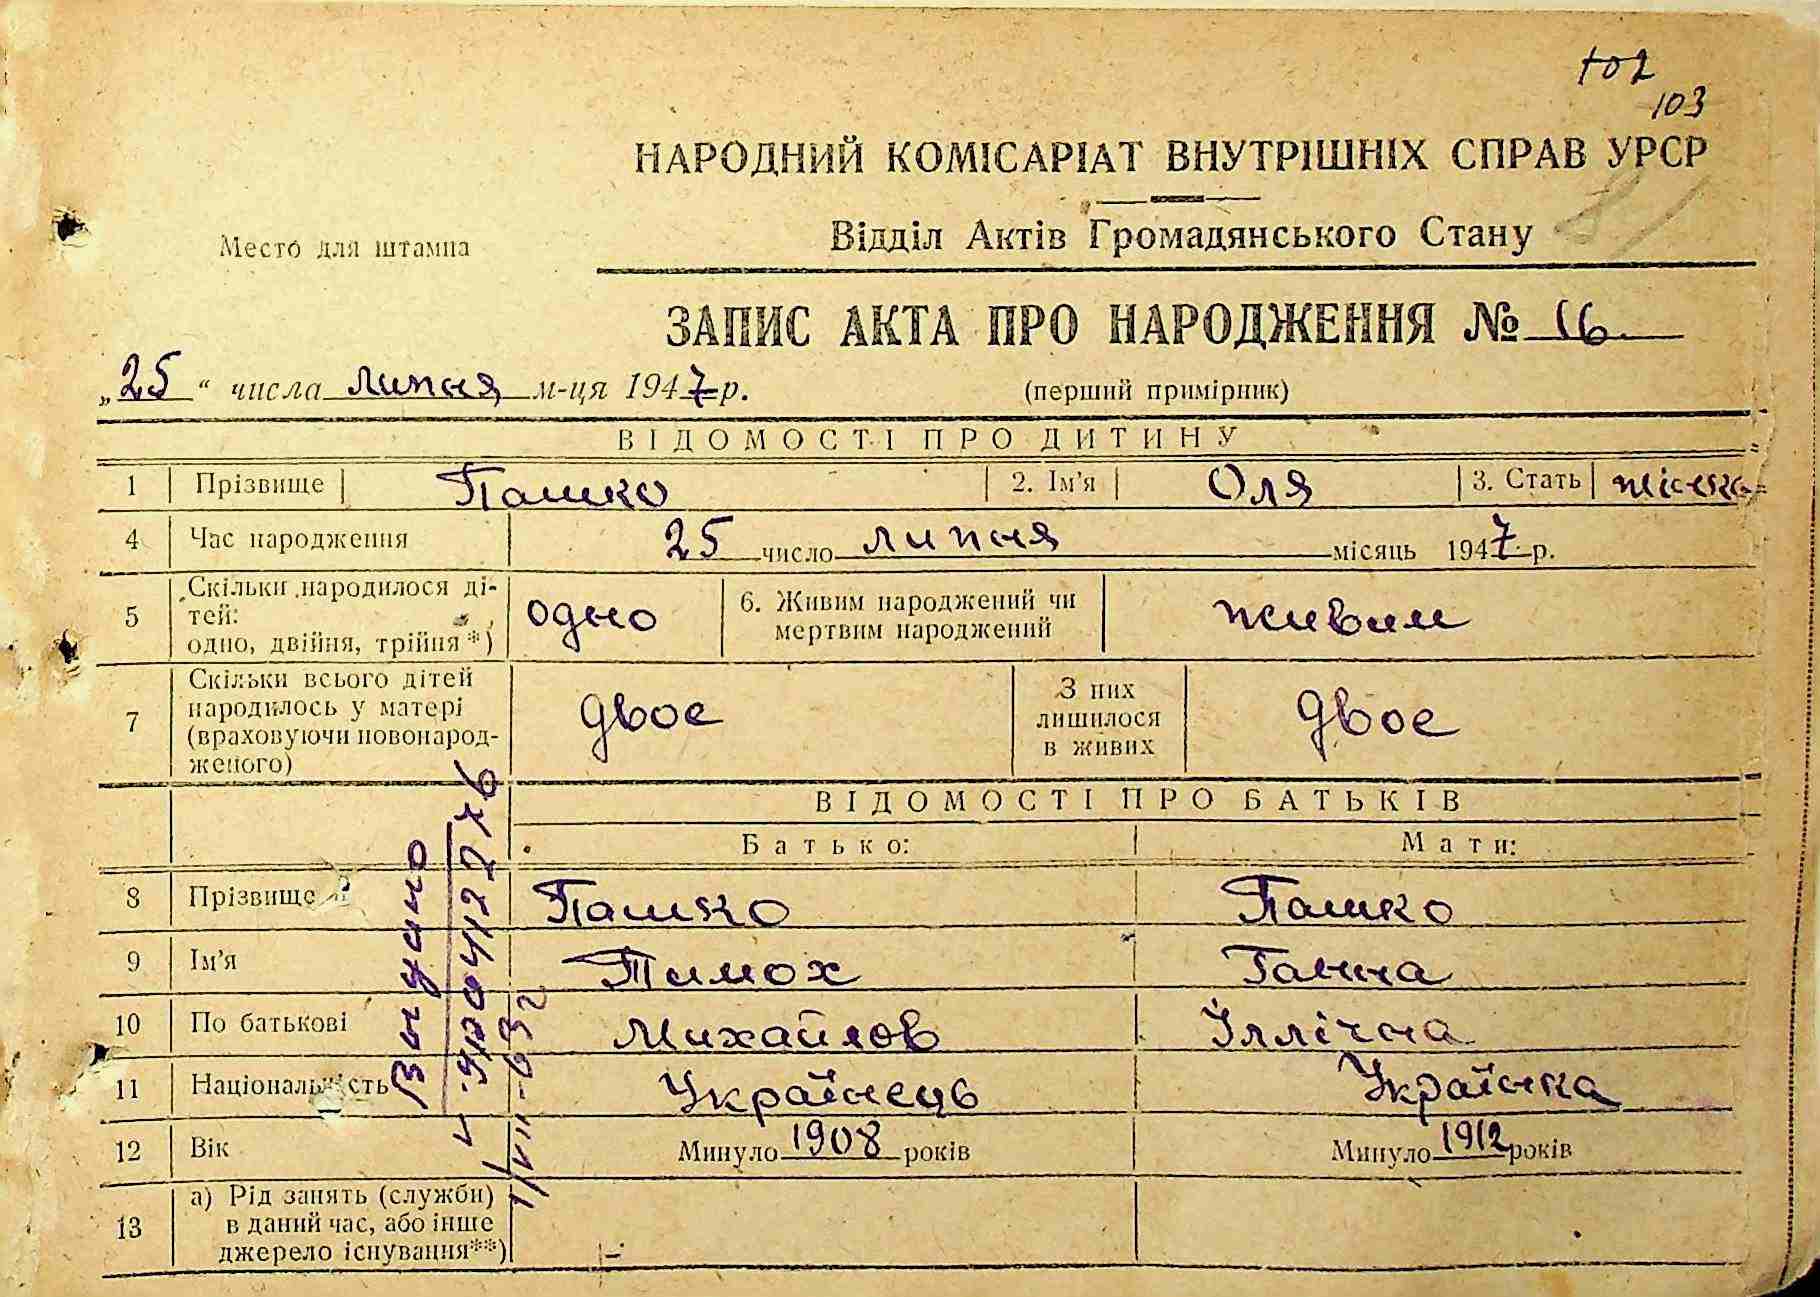 102
103
НАРОДНИЙ КОМІСАРІАТ ВНУТРІШНІХ СПРАВ УРСР
Відділ Актів Громадянського Стану
Место для штампа
ЗАПИС АКТА ПРО НАРОДЖЕННЯ № 16.
„25“ числа липня м-ця 1947 р.
(перший примірник)
ВІДОМОСТІ ПРО ДИТИНУ
1 Прізвище Пашко 2. Ім'я Оля 3. Стать жіноча
4 Час народження 25 число липня місяць 1947 р.
5 Скільки народилося ді-
тей:
одно, двійня, трійня*)
одно
6. Живим народжений чи
мертвим народжений
живим
7 Скільки всього дітей
народилось у матері
(враховуючи новонарод-
женого)
двоє
З них
лишилося
в живих
двоє
ВІДОМОСТІ ПРО БАТЬКІВ
Батько: Мати:
8 Прізвище Пашко Пашко
9 Ім'я Тимох Ганна
10 По батькові Михайлов Іллічна
11 Національність Українець Українка
12 Вік Минуло 1908 років Минуло 1912 років
13 а) Рід занять (служби)
в даний час, або інше
джерело існування**)
Выдано